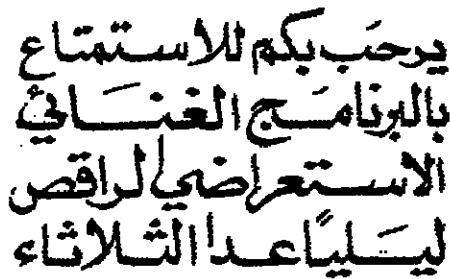 يرحَب بكم للاستمتاع
بالبرنامَج الغنَائي
الاستعراضي الراقص
ليَليًا عدا الثلاثاء